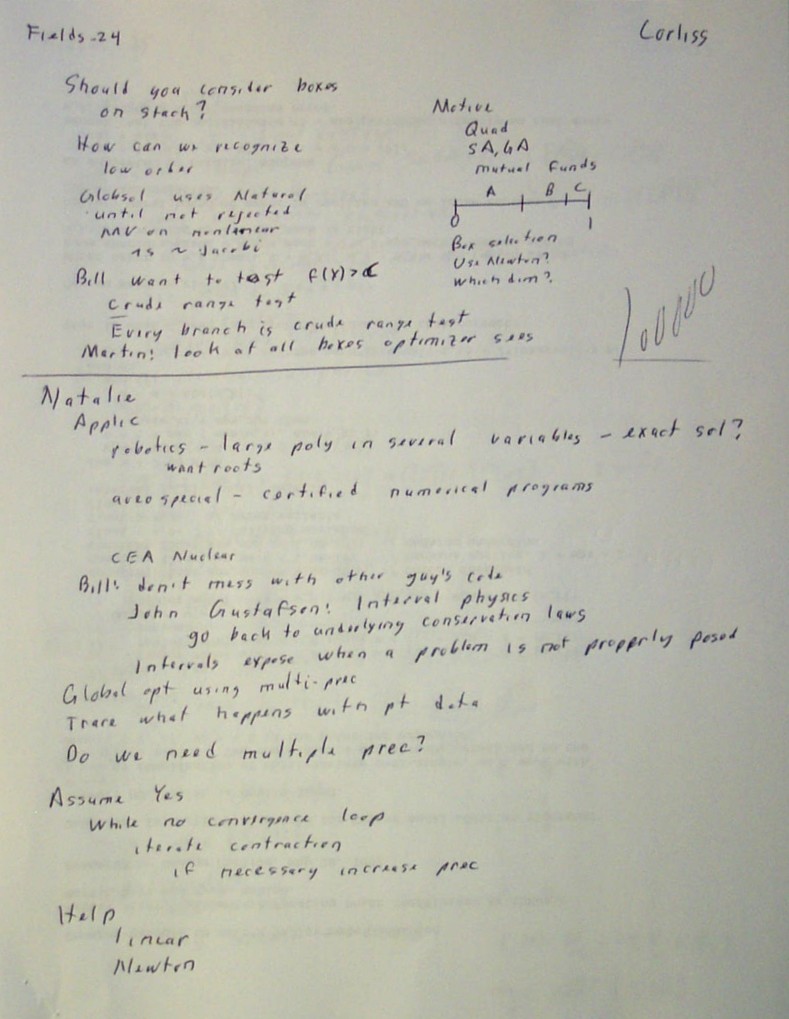 Fields-24
Corliss
Should you consider boxes
on stack?
How can we recognize
low order
Globsol uses Natural
until not rejected
MV on nonlinear
as ~ Jacobi
Bill want to test f(X) >
Crude range test
Every branch is crude range test
Martin: look at all boxes optimizer sees
Motive
Quad
SA, GA
mutual funds
A B C
0 1
Box selection
Use Newton?
Which dim?
Natalie
Applic
robotics - large poly in several variables - exact sol?
want roots
aerospecial - certified numerical programs
CEA Nuclear
Bill: don't mess with other guy's code
John Gustafson: Interval physics
go back to underlying conservation laws
Intervals expose when a problem is not propperly posed
Global opt using multi-prec
Trace what happens with pt data
Do we need multiple prec?
Assume Yes
While no convergence loop
iterate contraction
if necessary increase prec
Help
linear
Newton